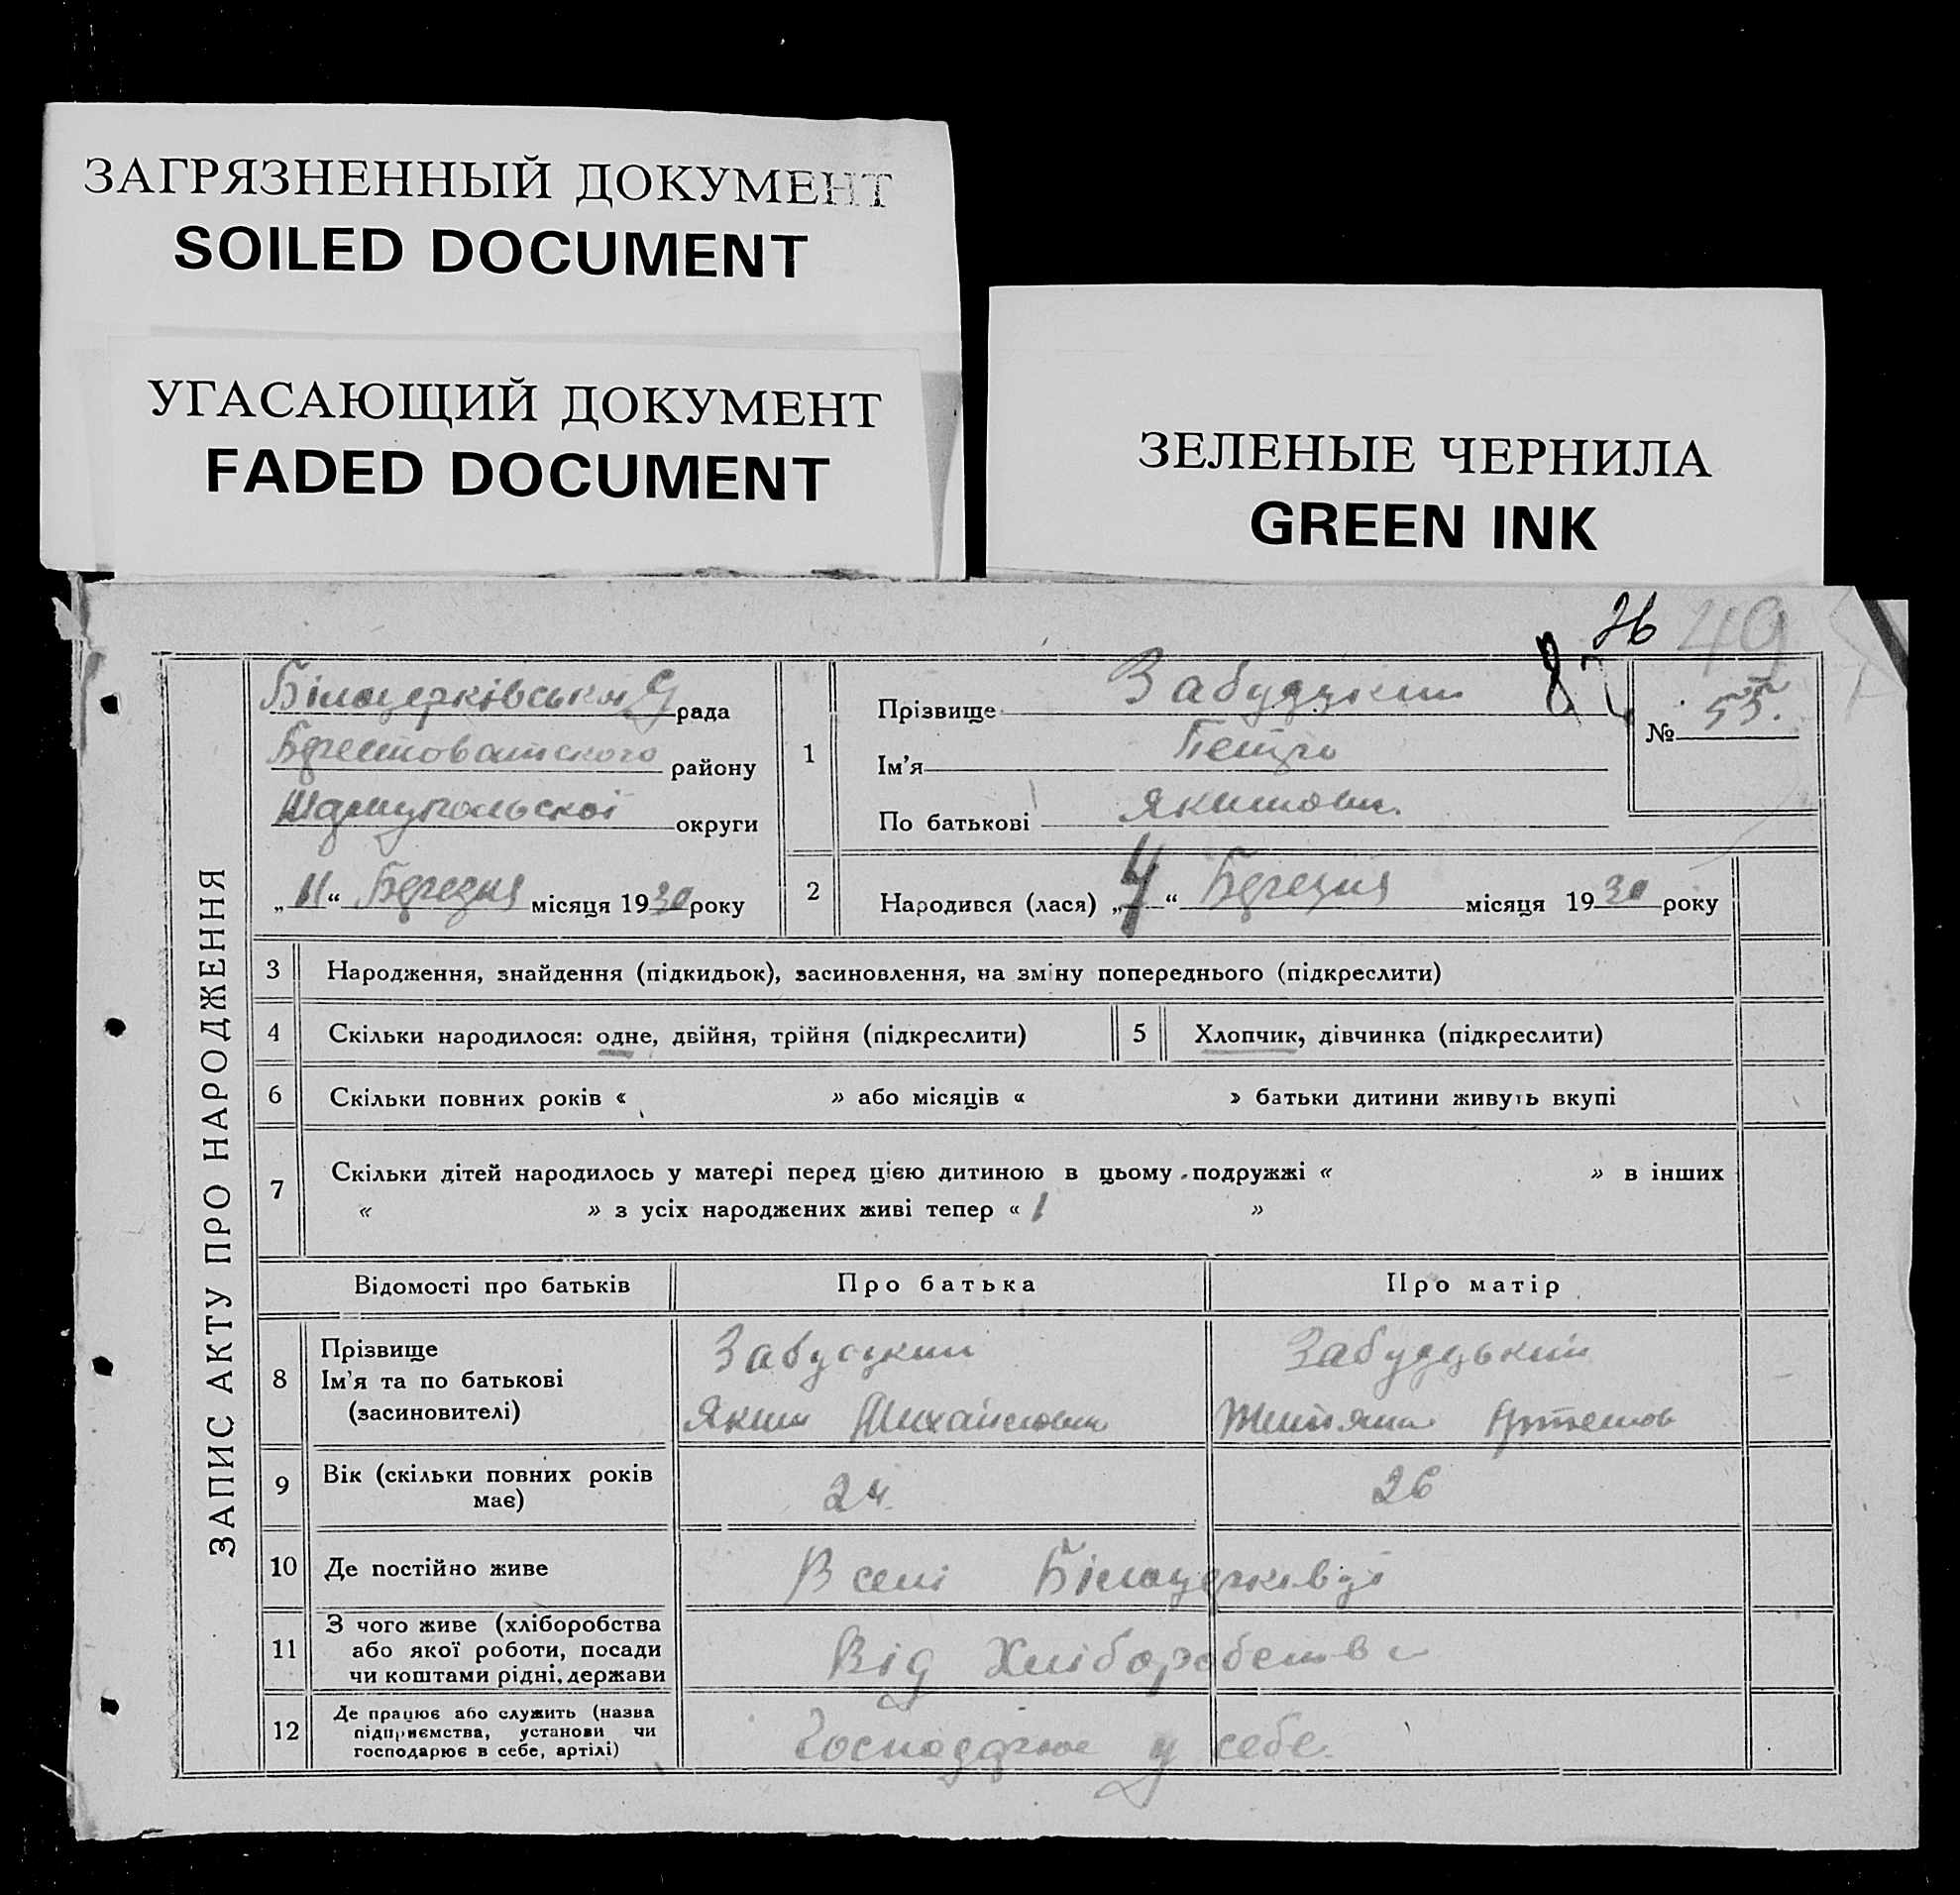 ЗАГРЯЗНЕННЫЙ ДОКУМЕНТ
SOILED DOCUMENT
УГАСАЮЩИЙ ДОКУМЕНТ
FADED DOCUMENT
ЗЕЛЕНЫЕ ЧЕРНИЛА
GREEN INK
26 49
ЗАПИС АКТУ ПРО НАРОДЖЕННЯ
Білоцерківська рада
району
округи
„11“ Березня місяця 1930 року
1
Прізвище Забудзкий
Ім'я Петро
По батькові Якимович
№ 55.
2 Народився (лася) „4“ Березня місяця 1930 року
3 Народження, знайдення (підкидьок), засиновлення, на зміну попереднього (підкреслити)
4 Скільки народилося: одне, двійня, трійня (підкреслити)
5 Хлопчик, дівчинка (підкреслити)
6 Скільки повних років « » або місяців « » батьки дитини живуть вкупі
7 Скільки дітей народилось у матері перед цією дитиною в цьому подружжі « » в інших
« » з усіх народжених живі тепер « 1 »
Відомості про батьків
Про батька
Про матір
8 Прізвище
Ім'я та по батькові
(засиновителі)
Забуцкий
Яким Михайлович
Забудзький
Артемов
9 Вік (скільки повних років
має)
24
26
10 Де постійно живе
В селі Білоцерківці
11 З чого живе (хліборобства
або якої роботи, посади
чи коштами рідні, держави
Від Хліборобства
12 Де працює або служить (назва
підприємства, установи чи
господарює в себе, артілі)
Господарює у себе.